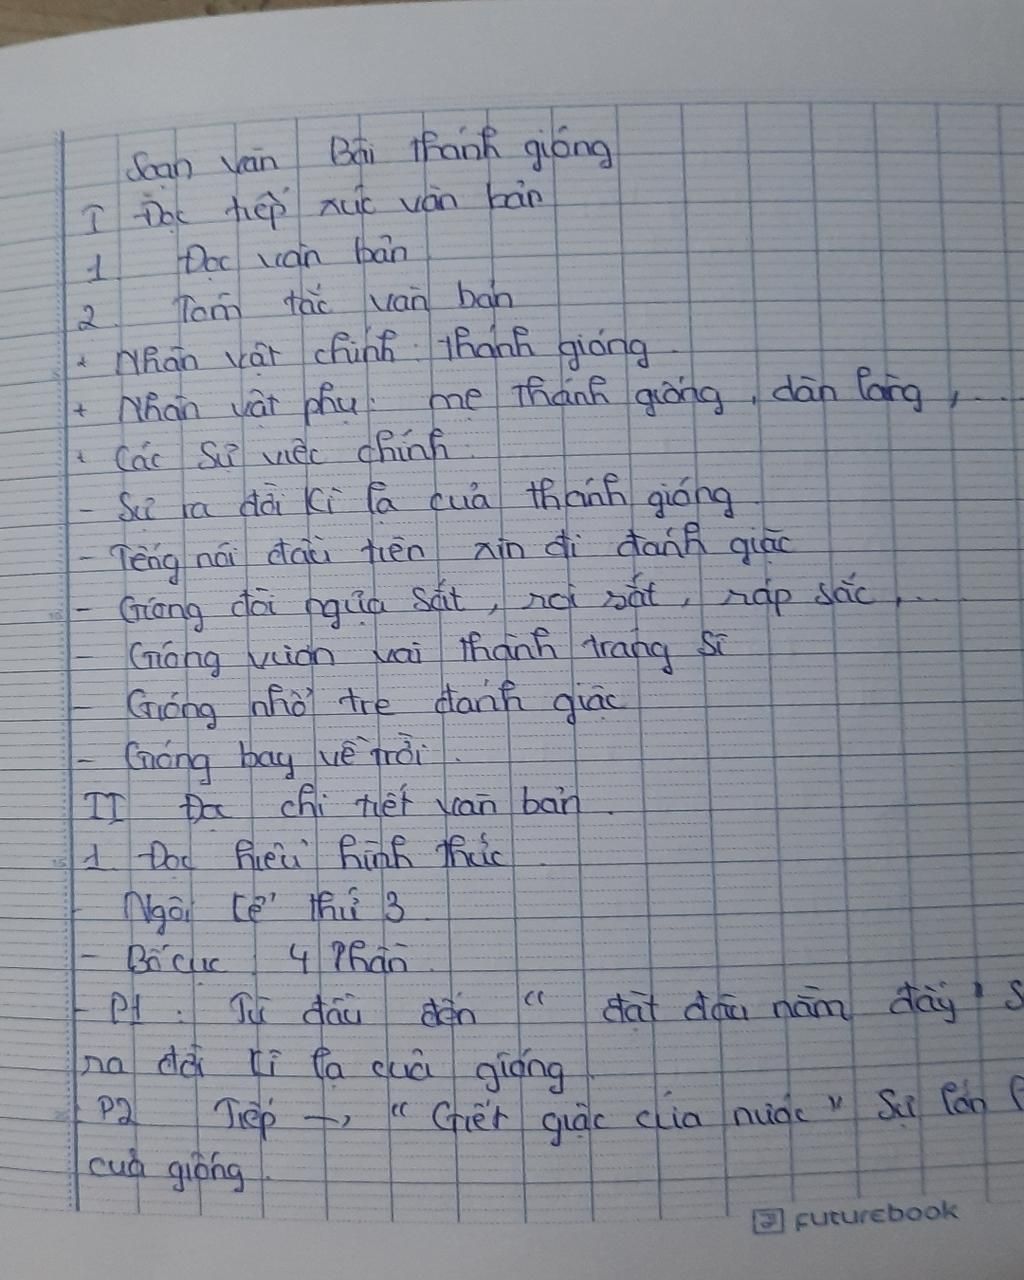 Soạn văn Bài thánh gióng
I Đọc tiếp xúc văn bản
1 Đọc văn bản
2. Tóm tắc văn bản
+ Nhân vật chính: thánh gióng
+ Nhân vật phụ: mẹ thánh gióng, dân làng, ...
+ Các sự việc chính
- Sự ra đời kì lạ của thánh gióng
- Tếng nói đầu tiên xin đi đánh giặc
- Gióng đòi ngựa sắt, roi sắt, ráp sắc, ...
- Gióng vươn vai thành tráng sĩ
- Gióng nhổ tre đánh giặc
- Gióng bay về trời.
II Đọc chi tiết văn bản
1 Đọc hiểu hình thức
- Ngôi kể thứ 3
- Bố cục 4 Phần
- P1: Từ đầu đến " đặt đâu nằm đấy" S
ra đời kì lạ của gióng
- P2 Tiếp → " Giết giặc cứa nước" Sự lớn
của gióng.
FUTUREBOOK